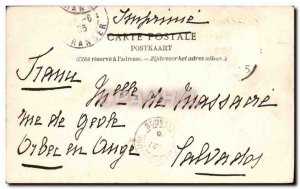 Imprimé
CARTE POSTALE
POSTKAART
(Côté réservé à l'adresse. — Zijdevoorhetadres alleen.)
Melle de Massacré
rue de Geole
Orbec en Auge
Calvados